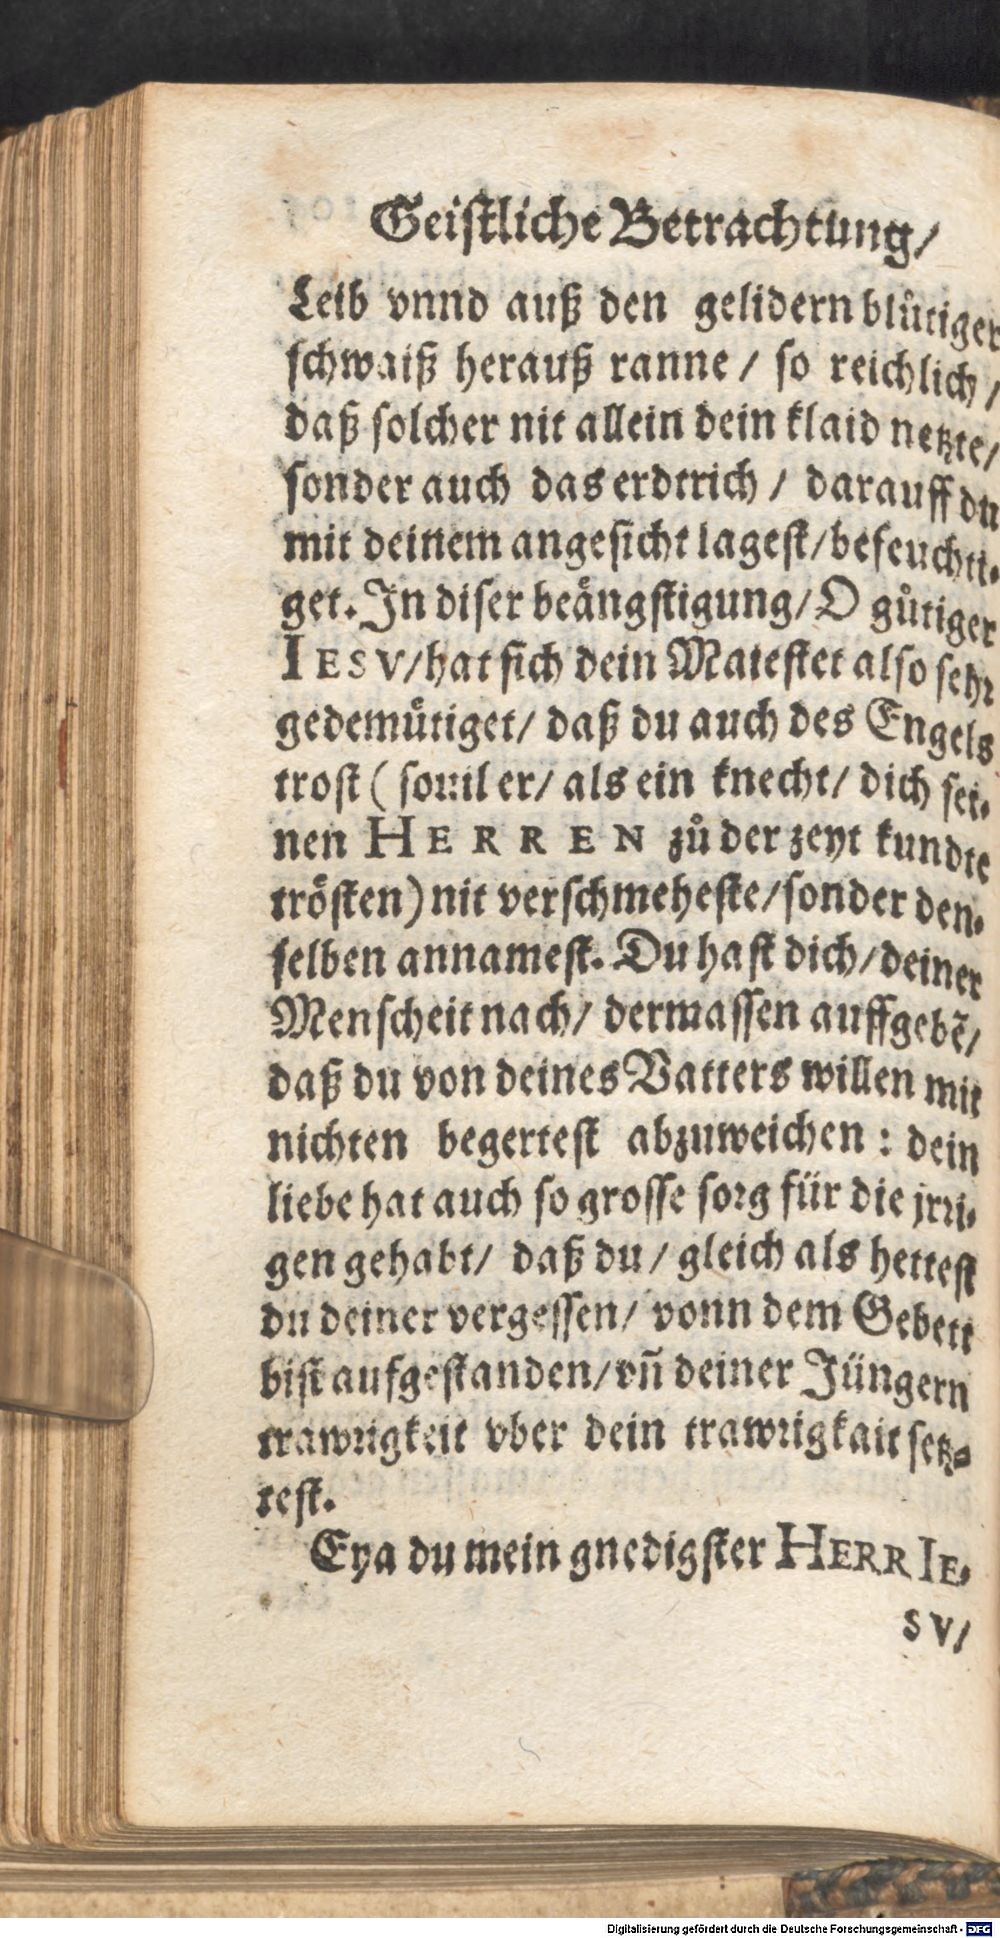 Geistliche Betrachtung/
Leib vnnd auß den gelidern blůtiger
schwaiß herauß ranne / so reichlich /
daß solcher nit allein dein klaid netzte/
sonder auch das erdtrich / darauff du
mit deinem angesicht lagest/befeuchti-
get. In diser beängstigung/O gůtiger
IESV/hat sich dein Maiestet also sehr
gedemütiget/ daß du auch des Engels
trost ( souil er/ als ein knecht/ dich sei-
nen HERREN zů der zeyt kundte
trösten) nit verschmeheste/sonder den-
selben annamest. Du hast dich/deiner
Menscheit nach/ dermassen auffgebẽ/
daß du von deines Vatters willen mit
nichten begertest abzuweichen : dein
liebe hat auch so grosse sorg für die jrri-
gen gehabt/ daß du / gleich als hettest
du deiner vergessen/ vonn dem Gebett
bist aufgestanden/vñ deiner Jüngern
trawrigkeit vber dein trawrigkait setz-
test.
Eya du mein gnedigster HERR IE-
SV/
Digitalisierung gefördert durch die Deutsche Forschungsgemeinschaft - DFG